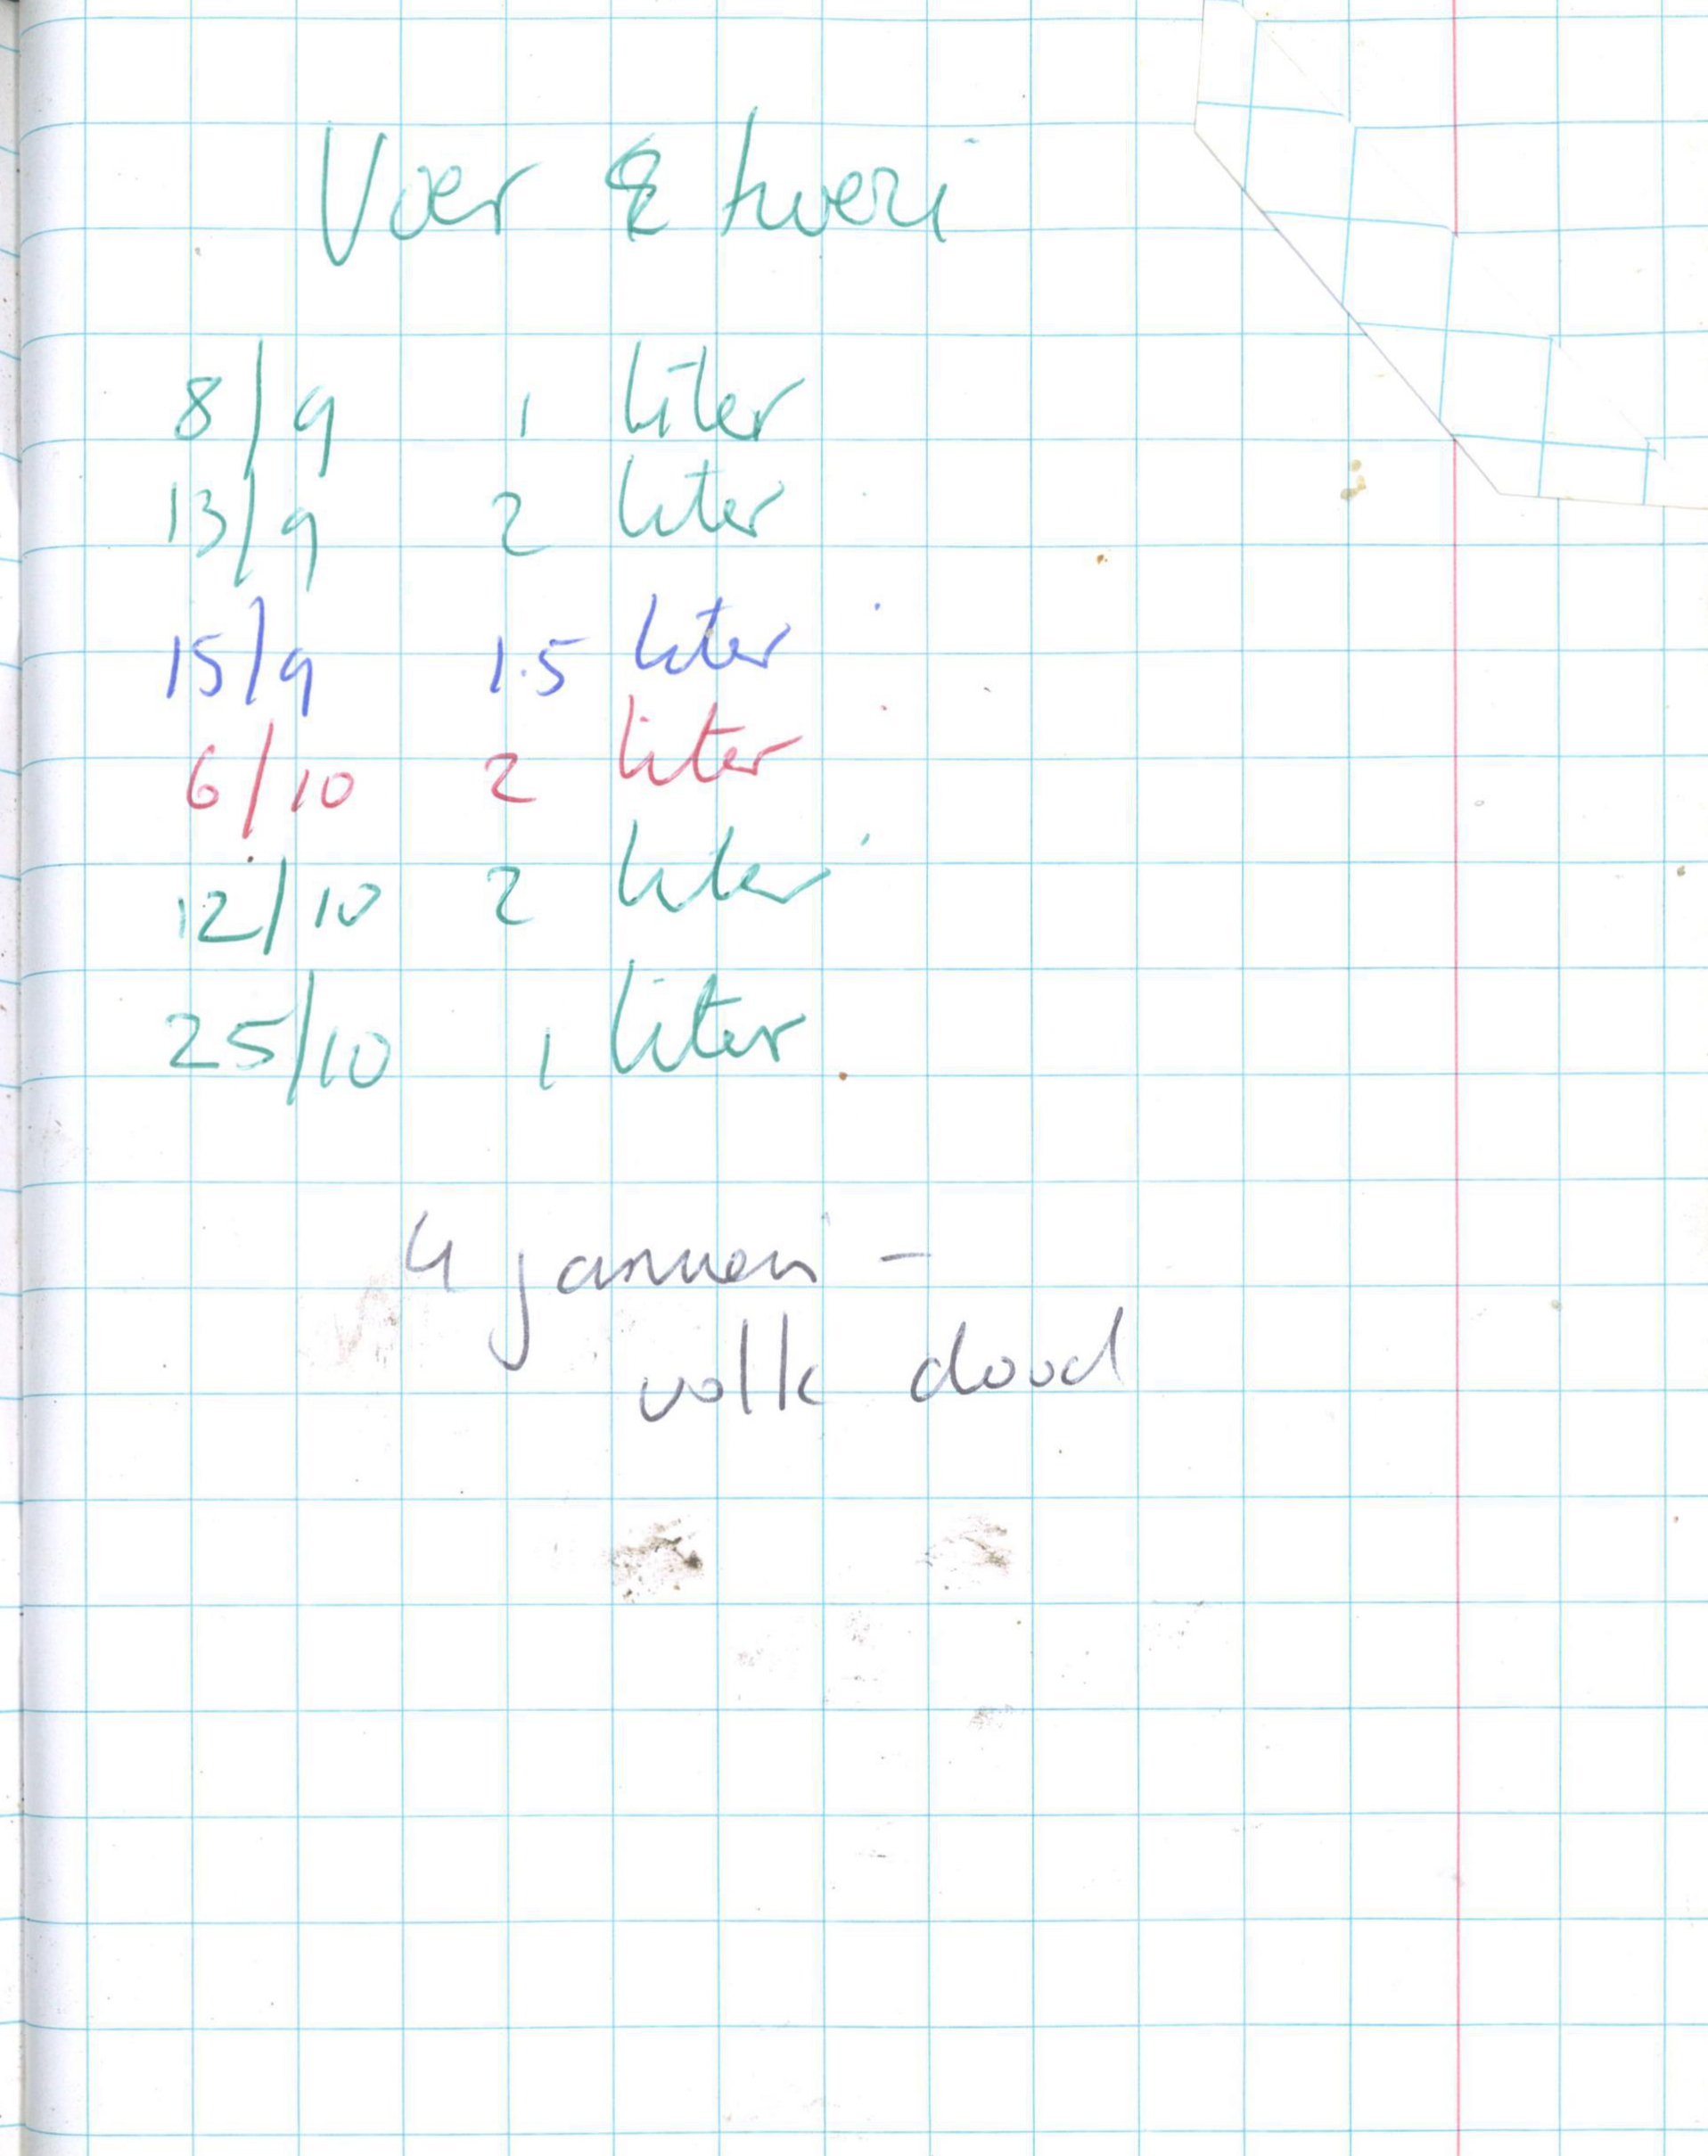 Voer &
8/9 1 liter
13/9 2 liter
15/9 1.5 liter
6/10 2 liter
12/10 2 liter
25/10 1 liter
4 januari -
volk dood